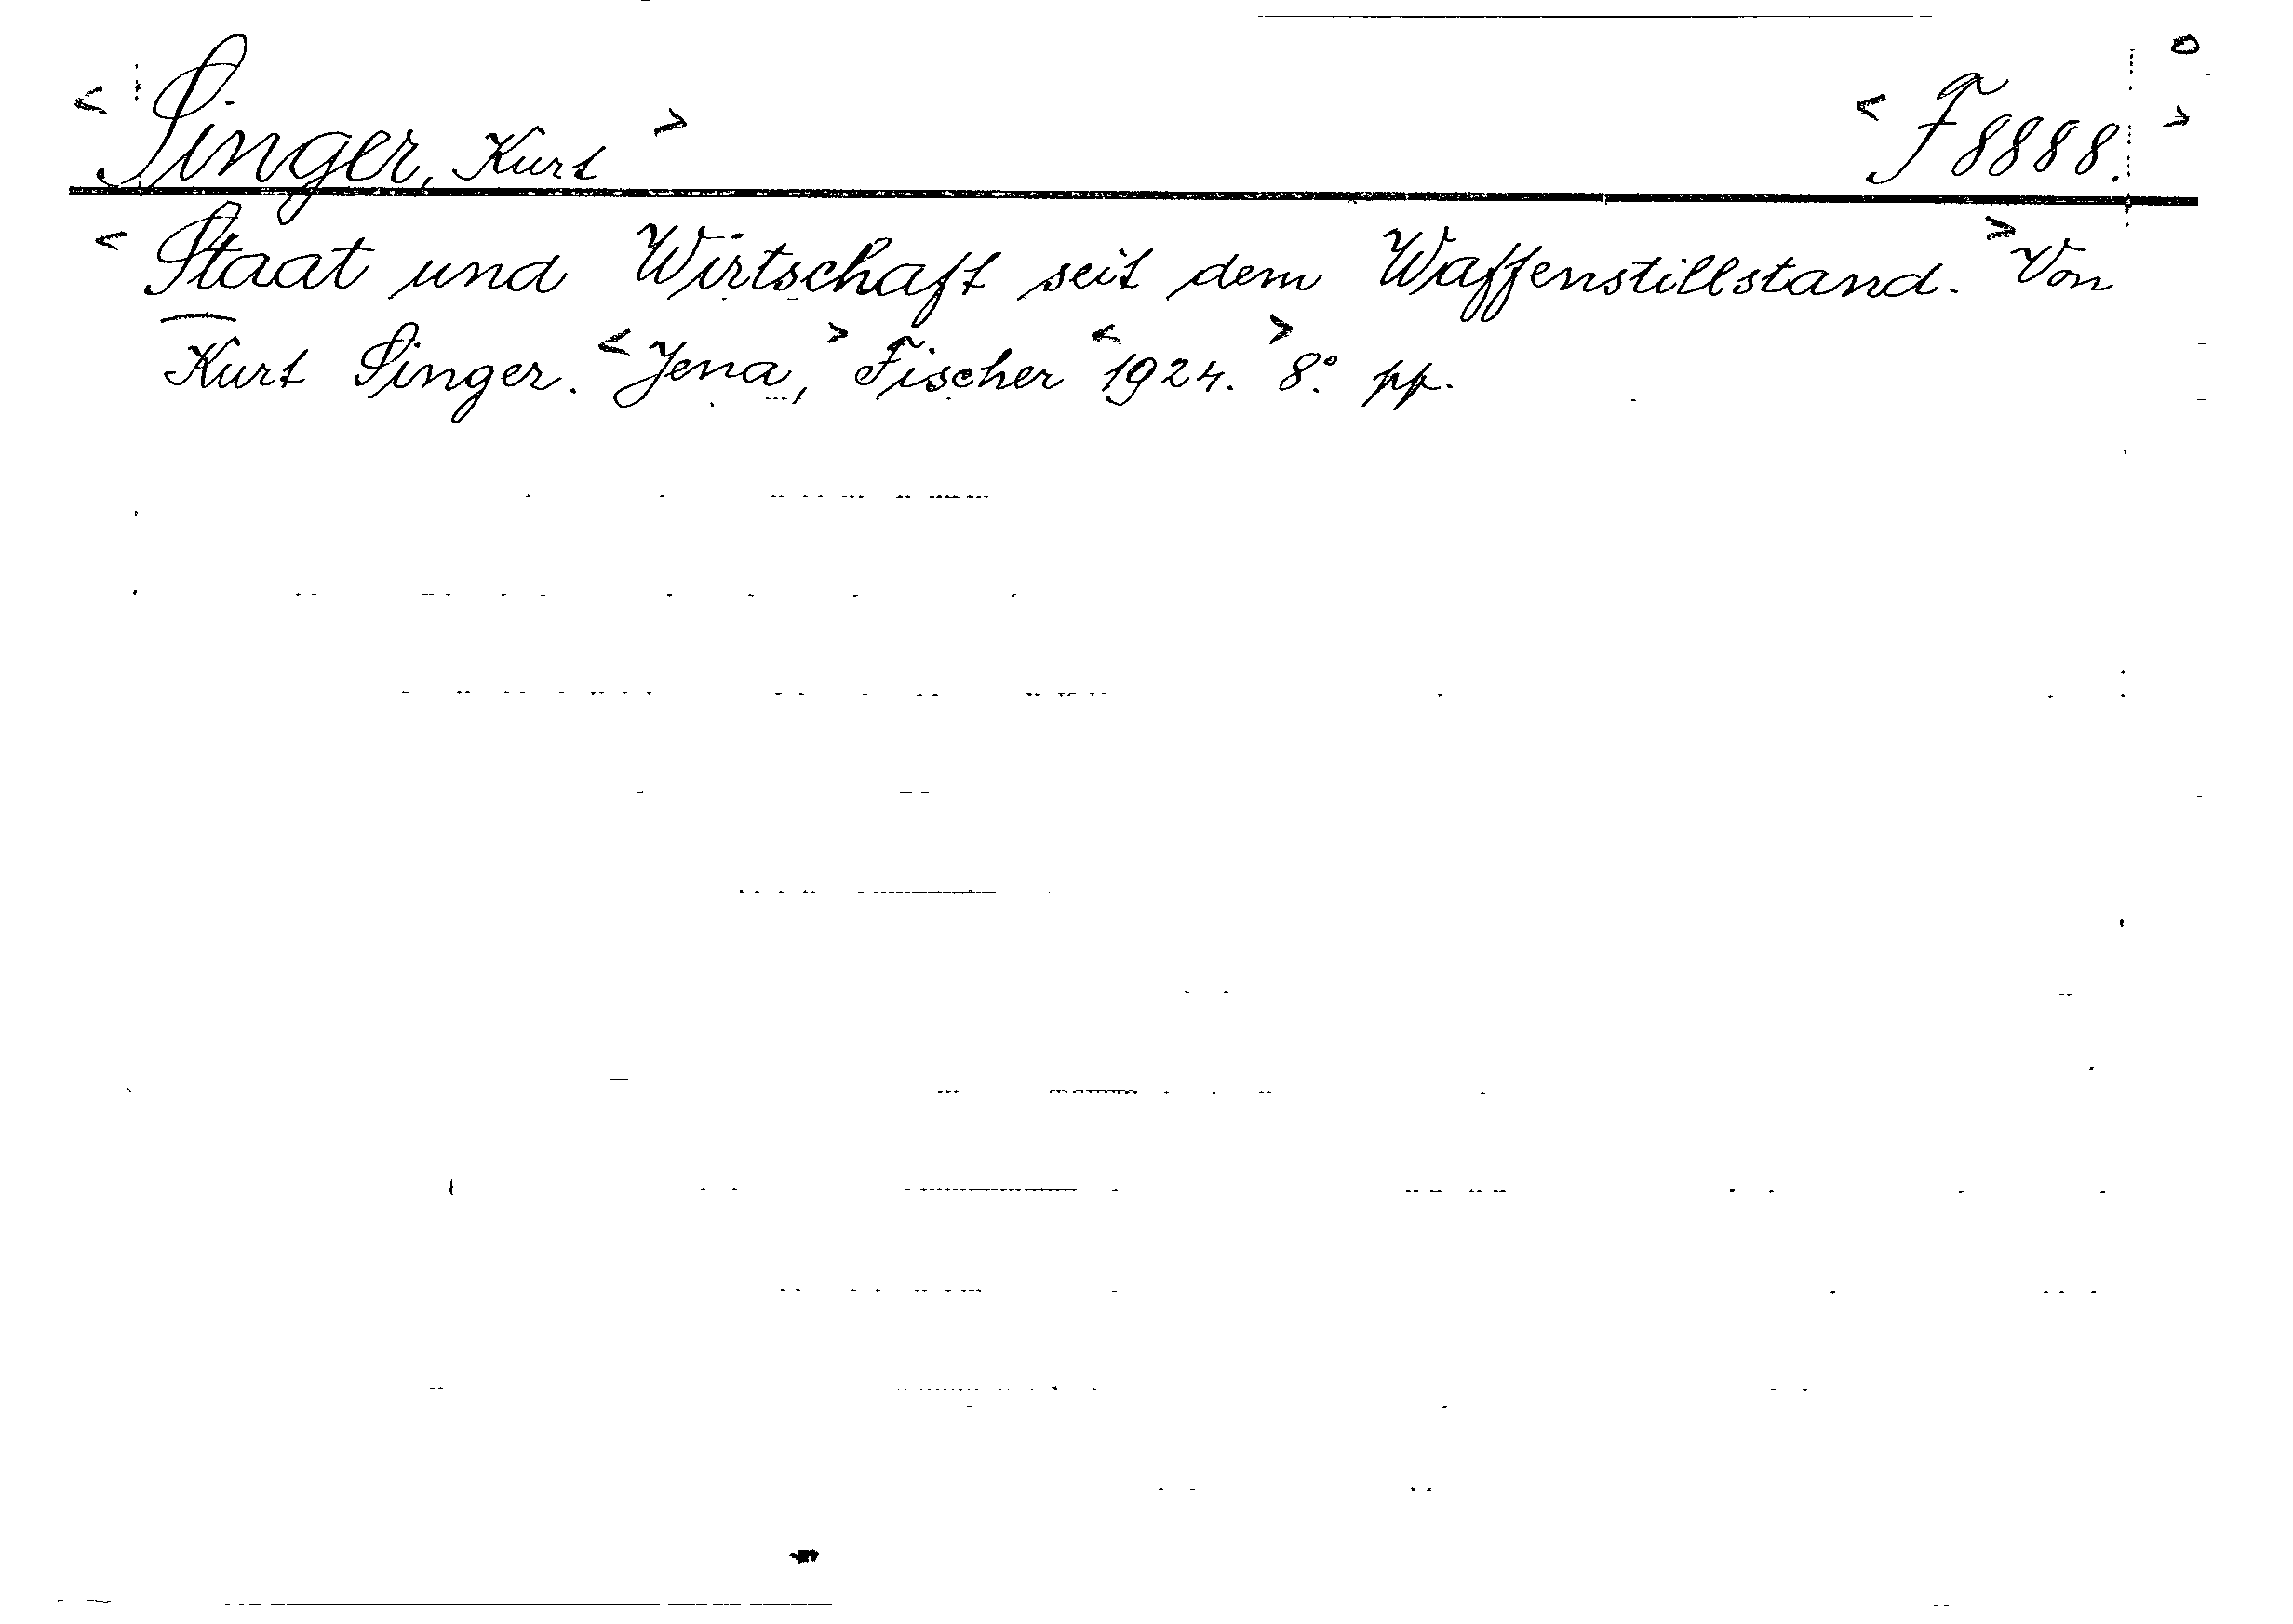 < Singer, Kurt > < F 8888. >
< Staat und Wirtschaft seit dem Waffenstillstand. > Von
Kurt Singer. < Jena, > Fischer < 1924. > 8° pp.